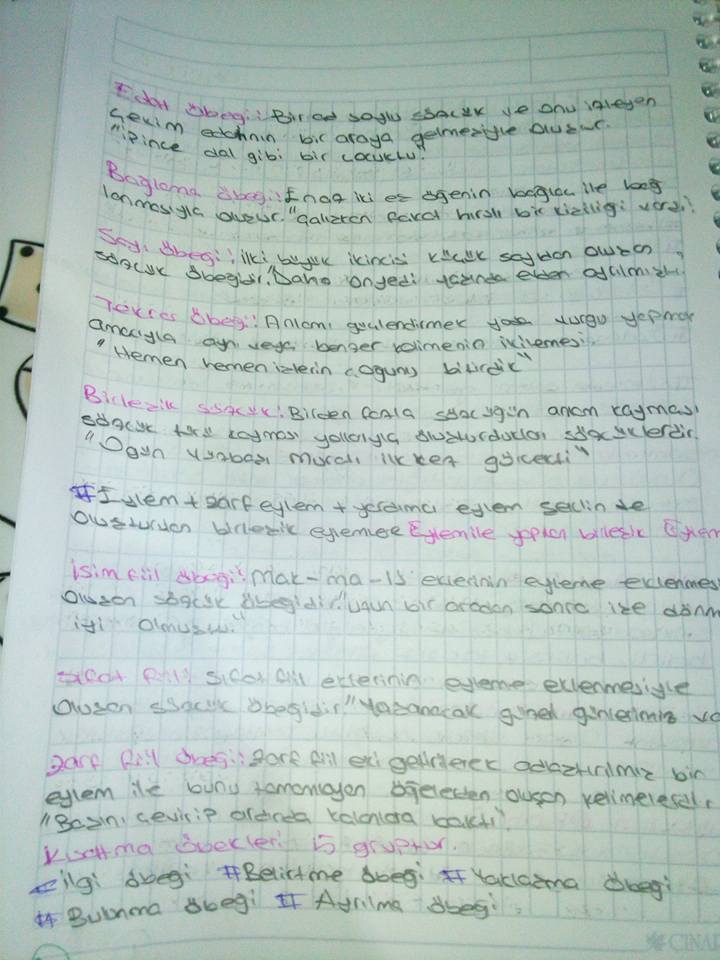 Edat öbeği: Bir ad soylu sözcük ve onu izleyen
çekim edatının bir araya gelmesiyle oluşur.
"İpince dal gibi bir çocuktu."
Bağlama öbeği: En az iki eş öğenin bağlaç ile bağ
lanmasıyla oluşur. "Çalışkan fakat hırslı bir kişiliği vardı."
Sayı öbeği: ilki büyük ikincisi küçük sayıdan oluşan
sözcük öbeğidir. "Daha onyedi yaşında evden ayrılmıştı.
Tekrar öbeği: Anlamı güçlendirmek yada vurgu yapmak
amacıyla aynı veya benzer kelimenin ikilemesi.
"Hemen hemen işlerin çoğunu bitirdik"
Birleşik sözcük: Birden fazla sözcüğün anlam kayması
sözcük türü kayması yollarıyla oluşturdukları sözcüklerdir.
"O gün yüzbaşı Murat'ı ilk kez görecekti"
# Eylem + zarf eylem + yardımcı eylem şeklinde
oluşturulan birleşik eylemlere Eylem ile yapılan birleşik Eylem
isim fiil öbeği: mak-ma-ış eklerinin eyleme eklenmes
oluşan sözcük öbeğidir. "uzun bir aradan sonra işe dönm
iyi olmuştu."
Sıfat fiil: sıfat fiil eklerinin eyleme eklenmesiyle
oluşan sözcük öbeğidir. "Yaşanacak güzel günlerimiz va
Zarf fiil öbeği: Zarf fiil eki getirilerek adlaştırılmış bir
eylem ile bunu tamamlayan öğelerden oluşan
"Başını çevirip ardında kalanlara baktı".
Kısaltma öbekleri 5 gruptur.
ilgi öbeği # Belirtme öbeği # Yaklaşma öbeği
# Bulunma öbeği # Ayrılma öbeği.
ÇINAR